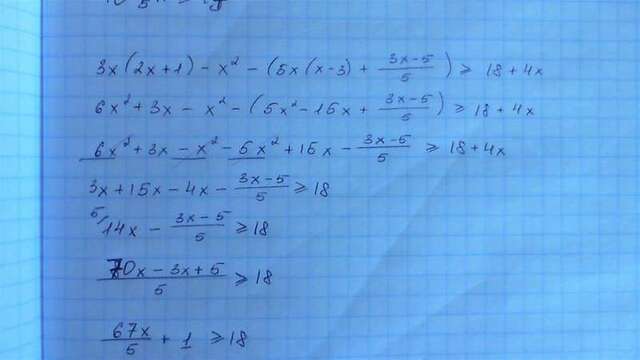 3x(2x+1) - x² - (5x(x-3) + (3x-5)/5) ≥ 18 + 4x
6x² + 3x - x² - (5x² - 15x + (3x-5)/5) ≥ 18 + 4x
6x² + 3x - x² - 5x² + 15x - (3x-5)/5 ≥ 18 + 4x
3x + 15x - 4x - (3x-5)/5 ≥ 18
5/ 14x - (3x-5)/5 ≥ 18
(70x - 3x + 5)/5 ≥ 18
67x/5 + 1 ≥ 18